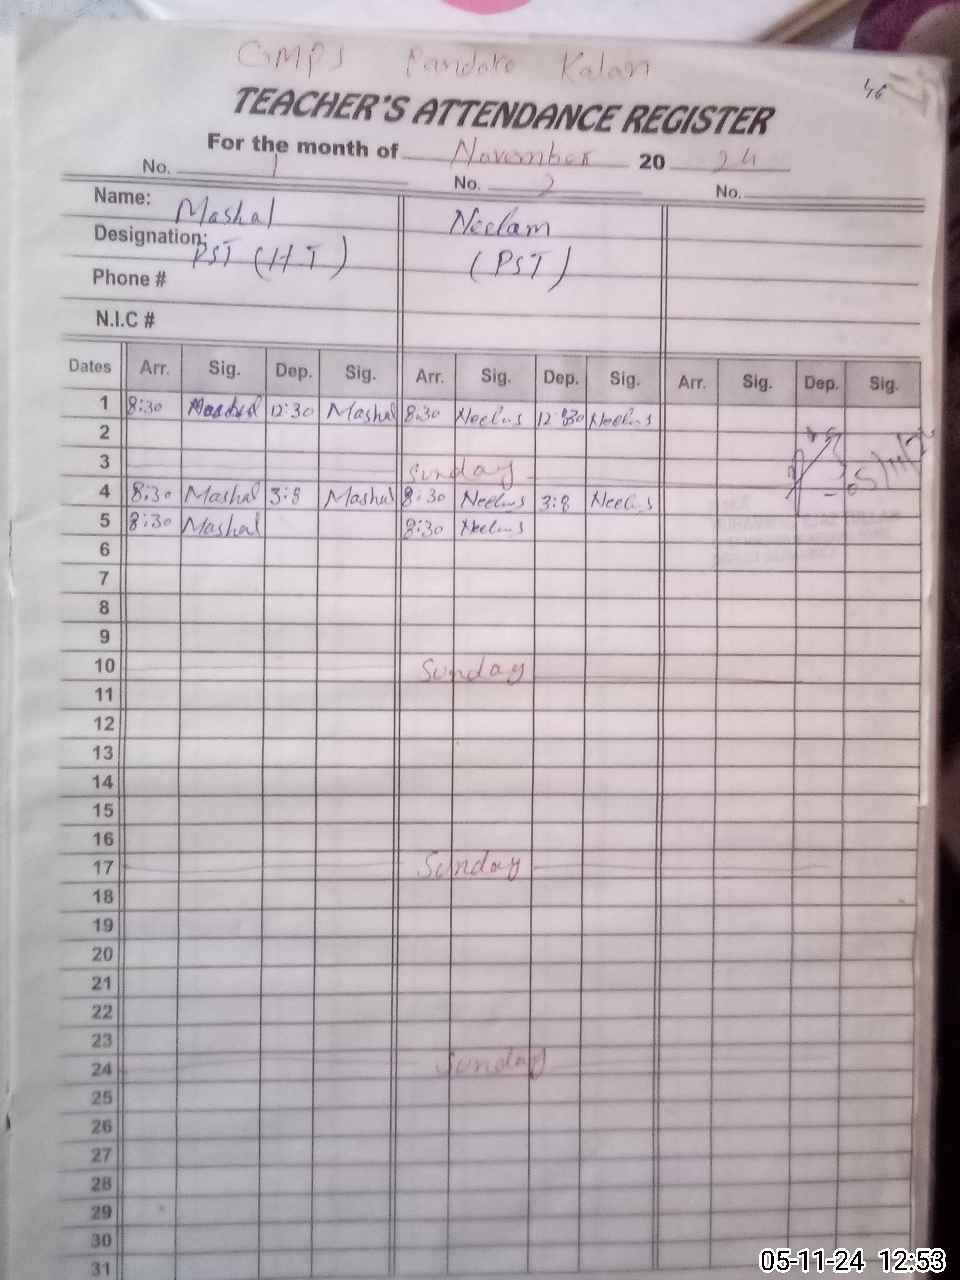 GMPS Pandoro Kalan
46
TEACHER'S ATTENDANCE REGISTER
For the month of November 2024
No. 1 No. 2 No.
Name: Mashal Neelam
Designation: PST (HT) (PST)
Phone #
N.I.C #
Dates Arr. Sig. Dep. Sig. Arr. Sig. Dep. Sig. Arr. Sig. Dep. Sig.
1 8:30 Mashal 12:30 Mashal 8:30 Neelus 12:30 Neelus
2
3 Sunday
4 8:30 Mashal 3:8 Mashal 8:30 Neelus 3:8 Neelus
5 8:30 Mashal 8:30 Neelus
6
7
8
9
10 Sunday
11
12
13
14
15
16
17 Sunday
18
19
20
21
22
23
24 Sunday
25
26
27
28
29
30
31
05-11-24 12:53